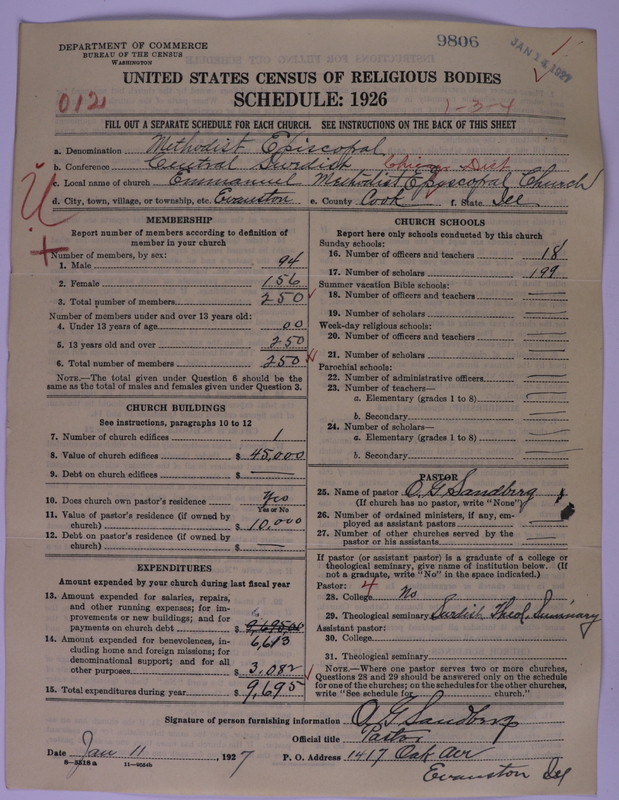 DEPARTMENT OF COMMERCE
BUREAU OF THE CENSUS
WASHINGTON
9806
JAN 14 1927
UNITED STATES CENSUS OF RELIGIOUS BODIES
SCHEDULE: 1926
012
1-3-4
FILL OUT A SEPARATE SCHEDULE FOR EACH CHURCH. SEE INSTRUCTIONS ON THE BACK OF THIS SHEET
a. Denomination Methodist Episcopal
b. Conference Central Swedish Chicago Dist
c. Local name of church Emmanuel Methodist Episcopal Church
d. City, town, village, or township, etc. Evanston e. County Cook f. State Ill
MEMBERSHIP
Report number of members according to definition of
member in your church
Number of members, by sex:
1. Male 94
2. Female 156
3. Total number of members 250
Number of members under and over 13 years old:
4. Under 13 years of age 00
5. 13 years old and over 250
6. Total number of members 250
NOTE.—The total given under Question 6 should be
same as the total of males and females given under Question 3.
CHURCH BUILDINGS
See instructions, paragraphs 10 to 12
7. Number of church edifices 1
8. Value of church edifices $ 45,000
9. Debt on church edifices $ —
10. Does church own pastor's residence Yes
Yes or No
11. Value of pastor's residence (if owned by
church) $ 10,000
12. Debt on pastor's residence (if owned by
church) $ —
EXPENDITURES
Amount expended by your church during last fiscal year
13. Amount expended for salaries, repairs,
and other running expenses; for im-
provements or new buildings; and for
payments on church debt $ 9,695.00
6,613
14. Amount expended for benevolences, in-
cluding home and foreign missions; for
denominational support; and for all
other purposes $ 3,082
15. Total expenditures during year $ 9,695
CHURCH SCHOOLS
Report here only schools conducted by this church
Sunday schools:
16. Number of officers and teachers 18
17. Number of scholars 199
Summer vacation Bible schools:
18. Number of officers and teachers —
19. Number of scholars —
Week-day religious schools:
20. Number of officers and teachers —
21. Number of scholars —
Parochial schools:
22. Number of administrative officers —
23. Number of teachers—
a. Elementary (grades 1 to 8) —
b. Secondary —
24. Number of scholars—
a. Elementary (grades 1 to 8) —
b. Secondary —
PASTOR
25. Name of pastor O. G. Sandberg
(If church has no pastor, write "None")
26. Number of ordained ministers, if any, em-
ployed as assistant pastors —
27. Number of other churches served by the
pastor or his assistants —
If pastor (or assistant pastor) is a graduate of a college or
theological seminary, give name of institution below. (If
not a graduate, write "No" in the space indicated.)
Pastor: 4
28. College No
29. Theological seminary Swedish Theol. Seminary
Assistant pastor:
30. College
31. Theological seminary
NOTE.—Where one pastor serves two or more churches,
Questions 28 and 29 should be answered only on the schedule
for one of the churches; on the schedules for the other churches,
write "See schedule for church."
Signature of person furnishing information O. G. Sandberg
Official title Pastor
Date Jan 11, 1927 P. O. Address 1417 Oak Ave
8—5518a 11—9054b
Evanston Ill